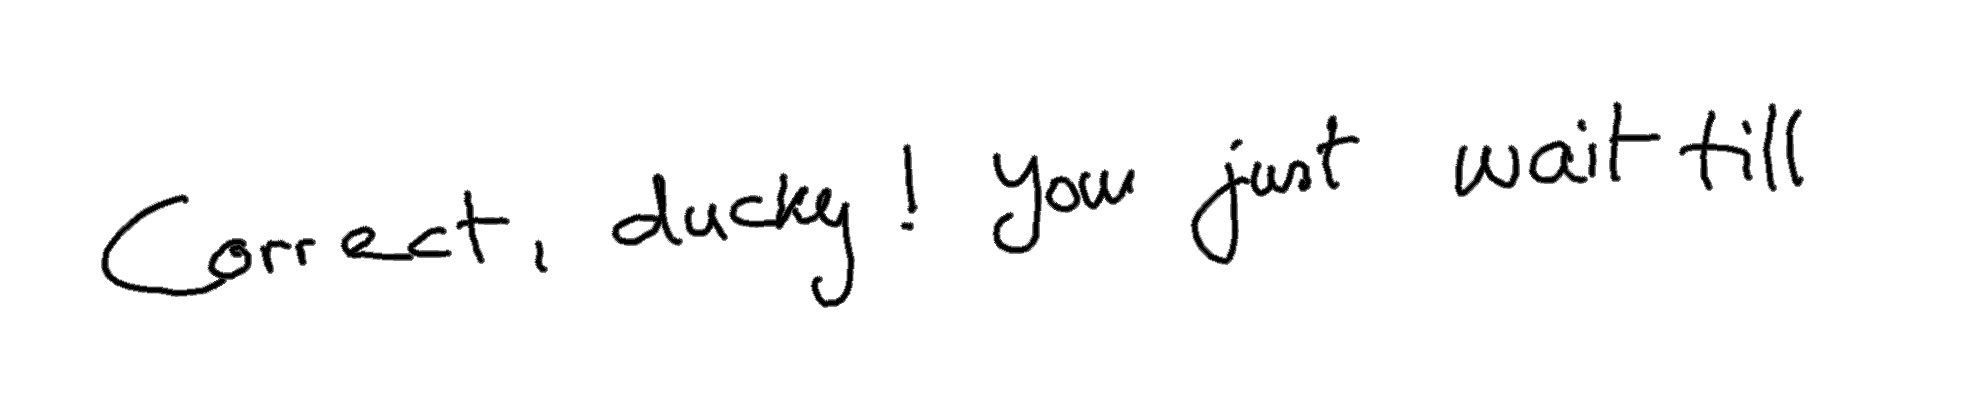 Correct, ducky! You just wait till